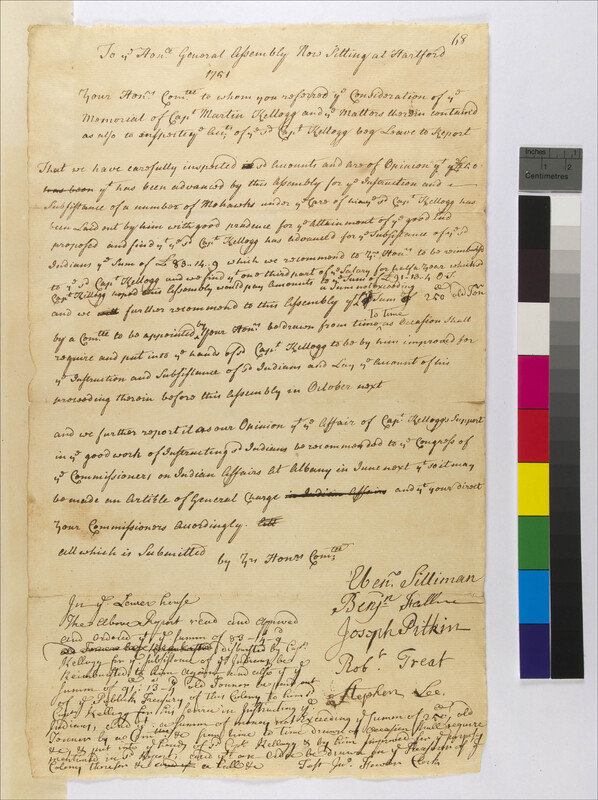 68
To yᵉ Honᵇˡᵉ General Assembly Now Sitting at Hartford
1751
Your Honʳˢ Comᵗᵉᵉ to whom you referred yᵉ Consideration of yᵉ
Memorial of Capᵗ Martin Kellogg and yᵉ Matters therein contained
as also to inspect yᵉ Accᵗ of yᵉ sᵈ Capᵗ Kellogg beg Leave to Report
That we have carefully inspected sᵈ Accounts and are of Opinion yᵗ yᵉ
yᵗ has been advanced by this Assembly for yᵉ Instruction and
Subsistance of a number of Mohawks under yᵉ Care of sᵈ Capᵗ Kellogg has
been Laid out by him with good prudence for yᵉ attainment of yᵉ good End
proposed and find yᵗ yᵉ sᵈ Capᵗ Kellogg has advanced for yᵉ Subsistance of yᵉ sᵈ
Indians yᵉ Sum of £83-14-9 which we recommend to Yʳ Honʳˢ to be reimbursed
to yᵉ sᵈ Capᵗ Kellogg and we find yᵉ one third part of yᵉ Salary for half a Year which sᵈ
Capᵗ Kellogg hoped this Assembly would pay Amounts to yᵉ Sum of £91-13-4 O.T.
and we further recommend to this Assembly yᵗ a Sum not exceeding 250£ old Tenʳ
by a Comᵗᵉᵉ to be appointed by Your Honʳˢ be drawn from time to time as Occasion Shall
require and put into yᵉ hands of sᵈ Capᵗ Kellogg to be by him improved for
yᵉ Instruction and Subsistance of sᵈ Indians and Lay yᵉ Account of his
proceeding therein before this Assembly in October next
and we further report it as our Opinion yᵗ yᵉ Affair of Capᵗ Kelloggs Support
in yᵉ good work of Instructing sᵈ Indians be recommended to yᵉ Congress of
yᵉ Commissioners on Indian Affairs at Albany in June next yᵗ so it may
be made an Article of General Charge in Indian Affairs and yᵗ you direct
Your Commissioners Accordingly.
all which is Submitted
by Yʳ Honʳˢ Comᵗᵉᵉ
Ebenʳ Silliman
Benjⁿ Hall
Joseph Pitkin
Robᵗ Treat
Stephen Lee
In yᵉ Lower house
The above Report read and approved
and ordered yᵗ yᵉ summ of 83-14-9
disbursted by Capᵗ
Kellogg for yᵉ Subsistence of yᵉ Indians be
reimbursted to him again and also yᵉ
summ of 91:13-4 old Tennor be paid out
of yᵉ Publick Treasury of this Colony to said
Capᵗ Kellogg for his service in Instructing yᵉ
Indians, and yᵗ a summ of money not Exceeding yᵉ summ of 250£ old
Tennor by a Comᵗᵉᵉ &c from time to time drawn as occasion shall require
&c, & put into yᵉ hands of sᵈ Capᵗ Kellogg & by him improved for yᵉ purposes
mentioned in sᵈ Report, and yᵗ
Colony therefor &c a bill &c
Test Jnᵒ Fowler Clerk
Inches
1
2
Centimetres